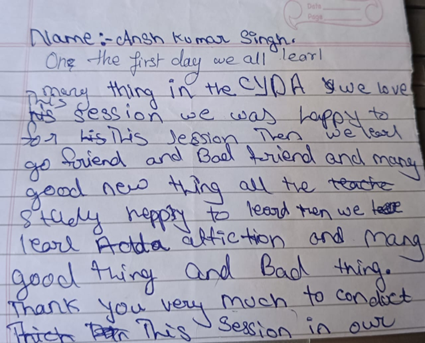 Date
Page
Name:- Ansh Kumar Singh.
One the first day we all learl
many thing in the CYDA we love
This session we was happy to
for This session Then we learl
go friend and Bad friend and many
good new thing all the
study heppy to leard then we
learl affiction and many
good thing and Bad thing.
Thank you very much to conduct
This session in our